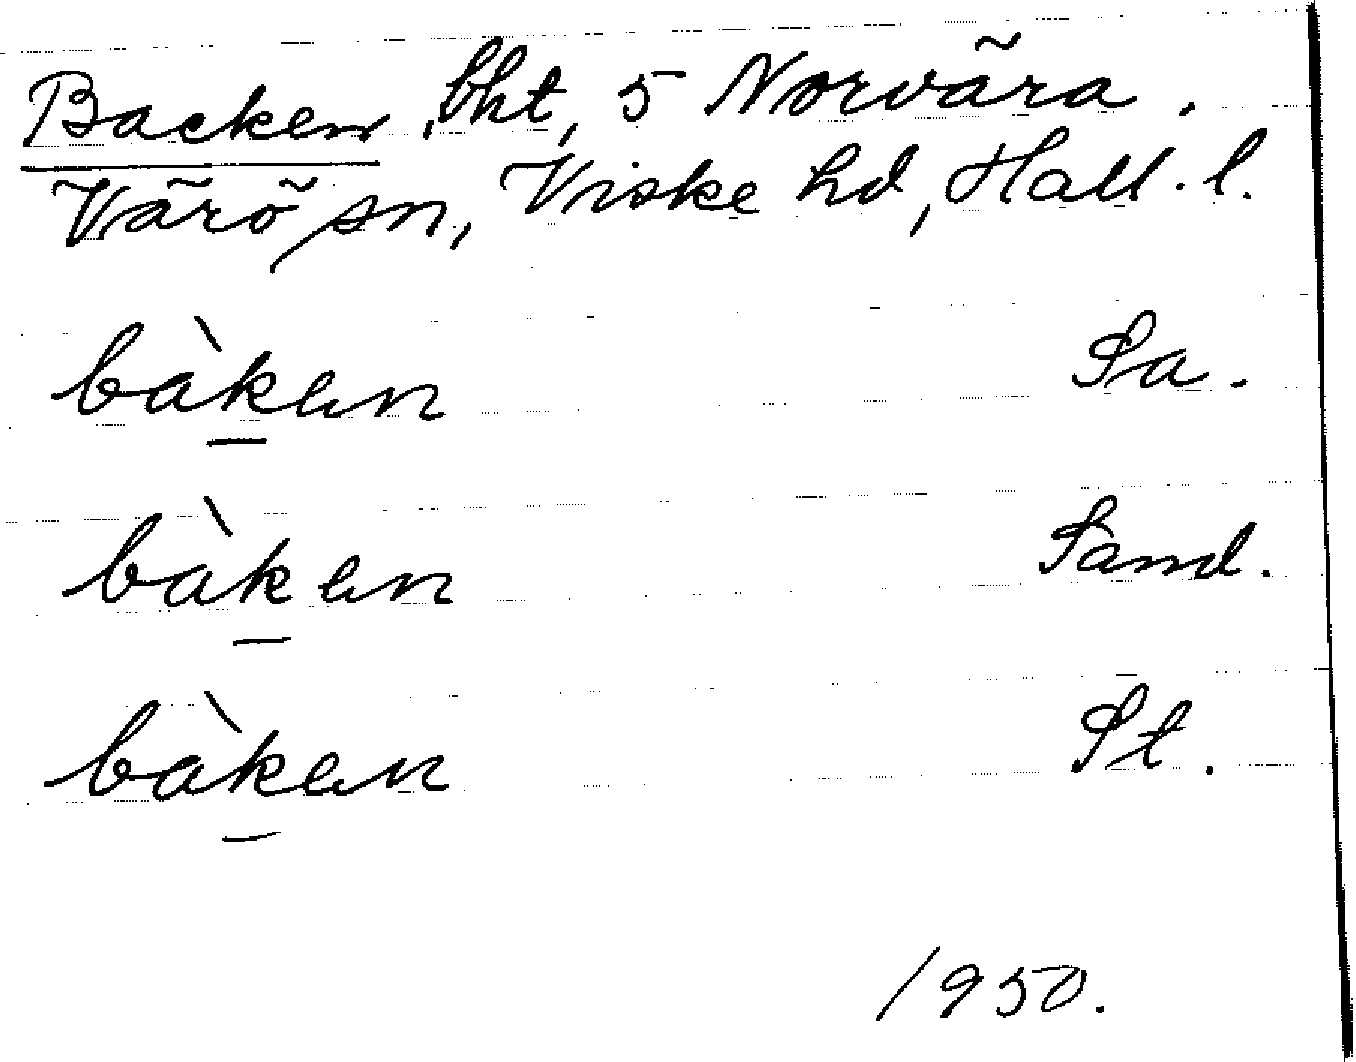 Backen, bht, 5 Norvära.
Värö sn, Viske hd, Hall. l.
bàken Sa.
bàken Sand.
bàken St.
1950.